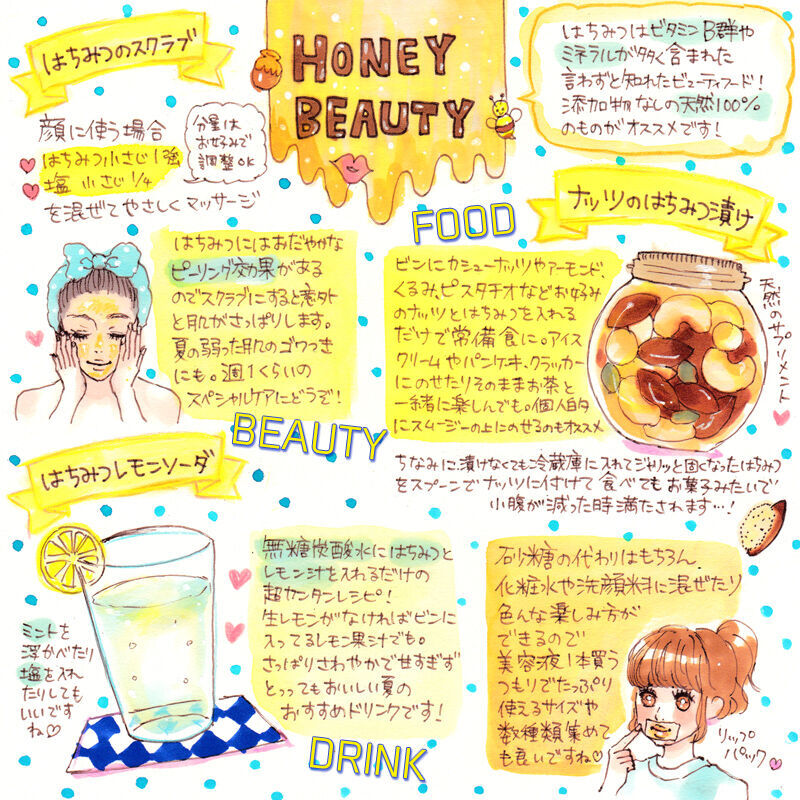 はちみつのスクラブ
HONEY
BEAUTY
はちみつはビタミンB群や
ミネラルが多く含まれた
言わずと知れたビューティフード!
添加物なしの天然100%
のものがオススメです!
顔に使う場合
はちみつ小さじ1強
塩 小さじ1/4
を混ぜてやさしくマッサージ
分量は
お好みで
調整OK
はちみつにはおだやかな
ピーリング効果がある
のでスクラブにすると意外
と肌がさっぱりします。
夏の弱った肌のゴワつき
にも。週1くらいの
スペシャルケアにどうぞ!
BEAUTY
FOOD
ナッツのはちみつ漬け
ビンにカシューナッツやアーモンド、
くるみ、ピスタチオなどお好み
のナッツとはちみつを入れる
だけで常備食に。アイス
クリームやパンケーキ、クラッカー
にのせたりそのままお茶と
一緒に楽しんでも。個人的
にスムージーの上にのせるのもオススメ
天然のサプリメント
ちなみに、漬けなくても冷蔵庫に入れてジャリッと固くなったはちみつ
をスプーンでナッツに付けて食べてもお菓子みたいで
小腹が減った時満たされます…!
はちみつレモンソーダ
無糖炭酸水にはちみつと
レモン汁を入れるだけの
超カンタンレシピ!
生レモンがなければビンに
入ってるレモン果汁でも。
さっぱりさわやかでせすぎず
とってもおいしい夏の
おすすめドリンクです!
ミントを
浮かべたり
塩を入れ
たりしても
いいです
ね♡
DRINK
砂糖の代わりはもちろん、
化粧水や洗顔料に混ぜたり
色んな楽しみ方が
できるので
美容液1本買う
つもりでたっぷり
使えるサイズや
数種類集めて
も良いですね♡
リップ
パック♡